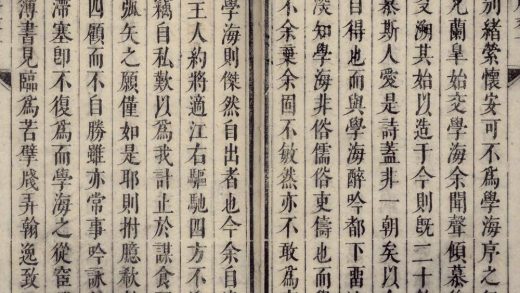 別緒縈懷安可不爲學海序之
兄蘭臯始交學海余聞聲傾慕後
溯其始以造于今則旣二十
慕斯人愛是詩蓋非一朝矣以
自得也而與學海醉吟都下畱
深知學海非俗儒俗吏儔也而
不余棄余固不敏然亦不敢爲
學海則傑然自出者也今余自
王人約將適江右驅馳四方不
竊自私歎以爲我計止於謀食
弧矢之願僅如是耶則拊臆欷
四顧而不自勝雖亦常事吟詠
滯塞卽不復爲而學海之從宦
簿書見臨爲苦擘牋弄翰逸致